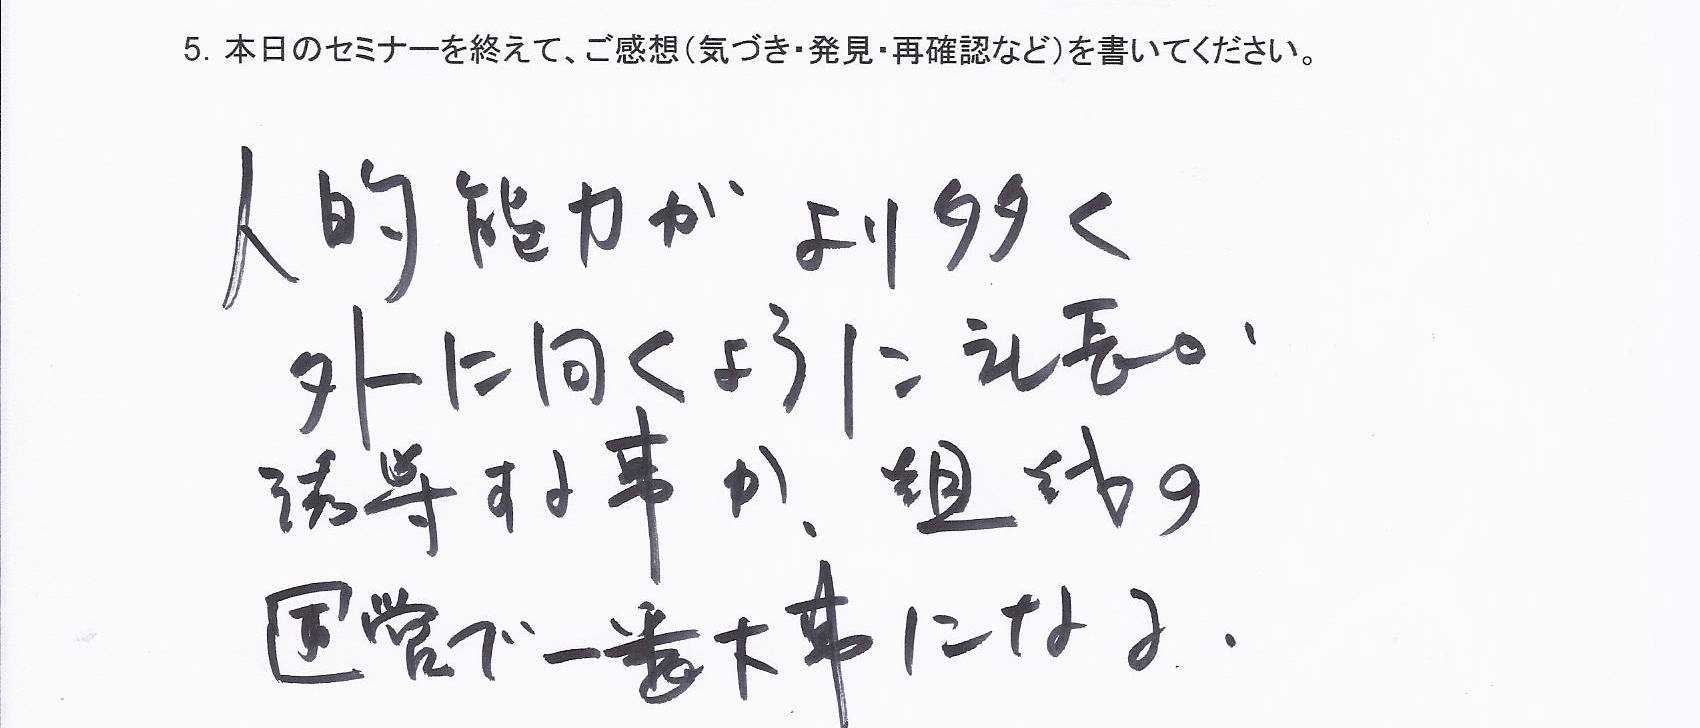 5. 本日のセミナーを終えて、ご感想（気づき・発見・再確認など）を書いてください。
人的能力がより多く
外に向くように社長が
誘導する事が、組織の
国営で一番大事になる.